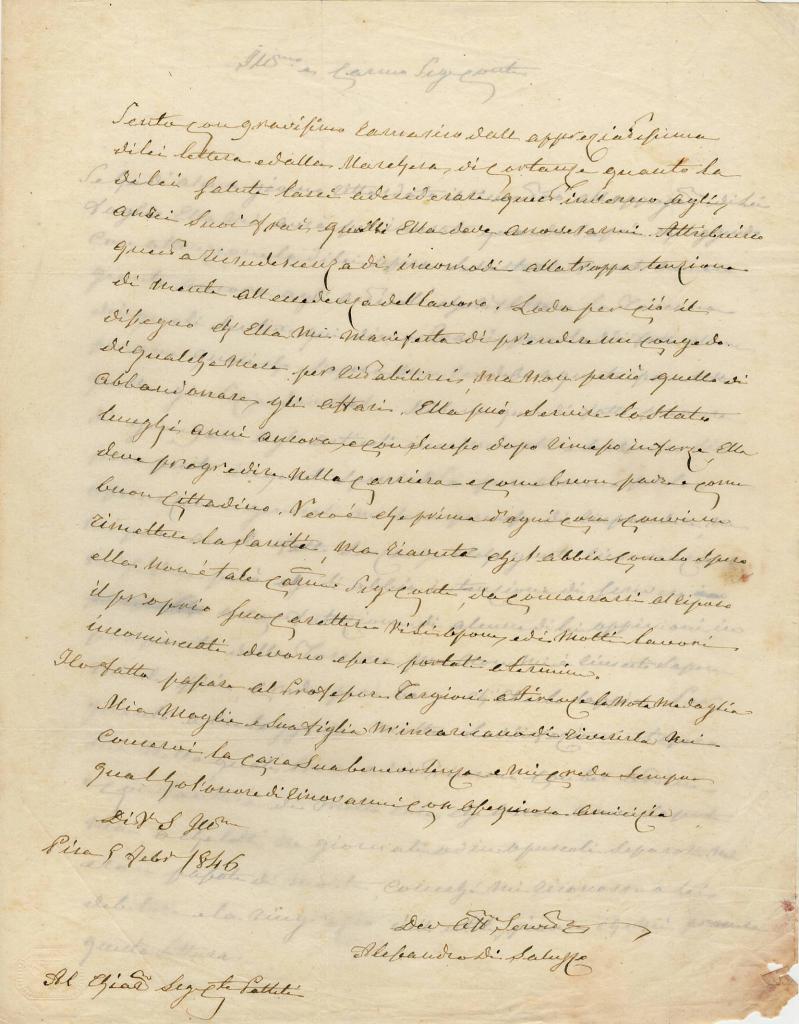 Ill.mo e Car.mo Sig. Conte
Sento con gravissimo ramarico dall'appreziatissima
di lei lettera e dalla Marchesa di Cortanze quanto la
di lei salute lasci a desiderare questo inverno agli
amici suoi frai quelli Ella deve anoverarmi. Attribuisco
questa recrudescenza di incomodi alla troppa tenzione
di mente all eccedenza del lavoro. Lodo per ciò il
dissegno ch' Ella mi manifesta di prendere un congedo
di qualche mese per ristabilirsi, ma non perciò quello di
abbandonare gli affari. Ella può servire lo Stato
lunghi anni ancora e con successo dopo rimesso in forze, Ella
deve progredire nella carriera e come buon padre e come
buon cittadino. Vero è che prima d'ogni cosa conviene
rimettere la sanità, ma riavuta che l'abbia come lo spero
ella non è tale Car.mo Sig. Conte, da consacrarsi al riposo
il proprio suo carattere vi si opone, e di molti lavori
incominciati devono essere portati a termine.
Ho fatto passare al Professore Targioni a Firenze la nota medaglia
Mia Moglie e sua figlia m'incaricano di riverirla mi
conservi la cara sua benevolenza e mi creda sempre
qual ho l'onore di rinovarmi con ossequiosa amicizia
Di V. S. Ill.ma
Pisa 5 Feb.º 1846
Dev. Att.º Serv.e
Alessandro Di Saluzzo
Al Chiar.º Sig. Cte Pettiti